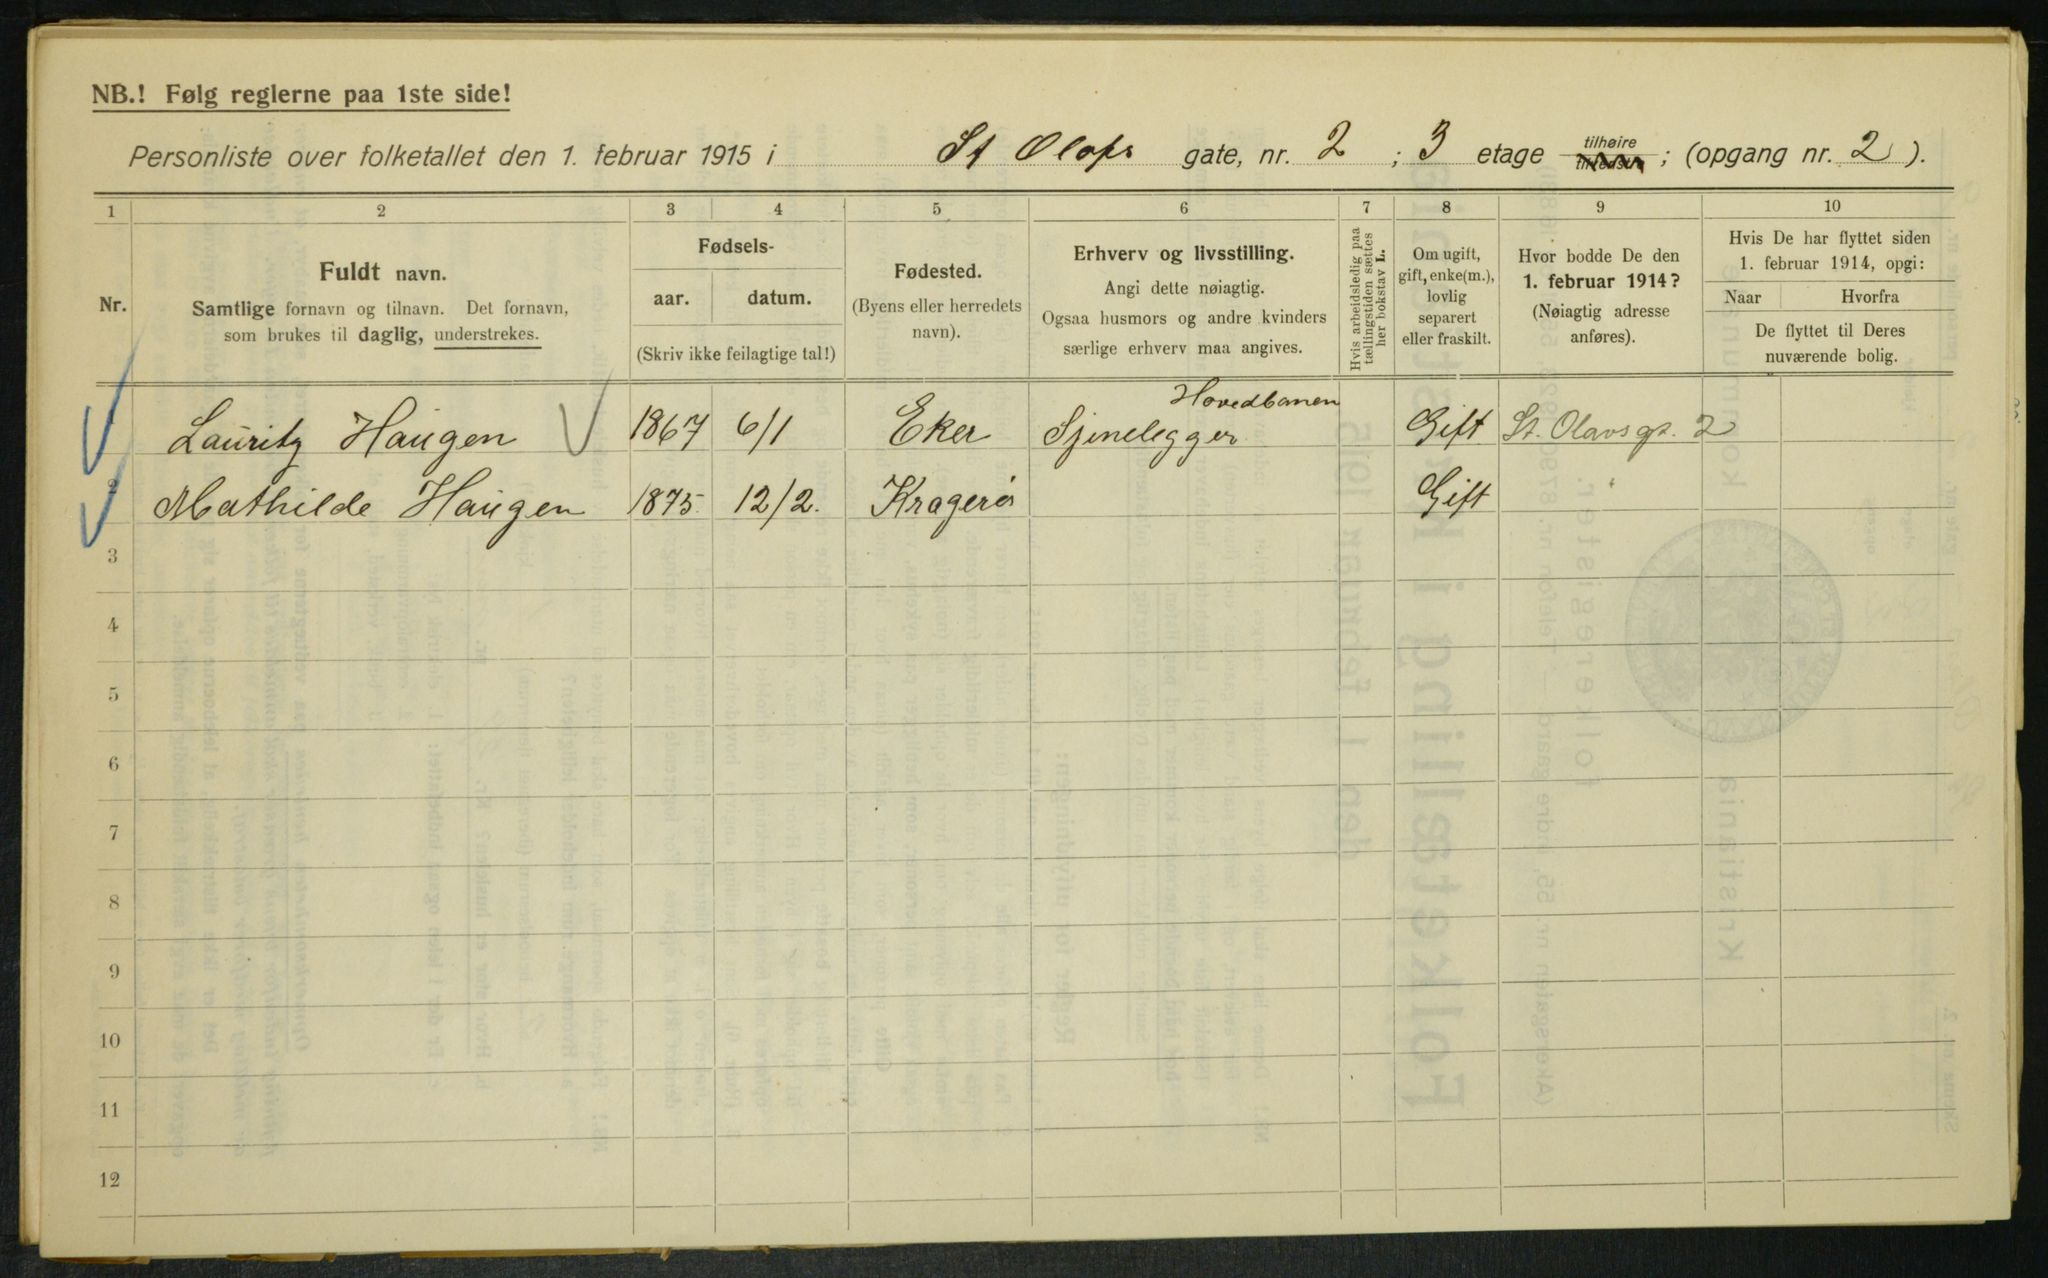 NB.! Følg reglerne paa 1ste side!
Personliste over folketallet den 1. februar 1915 i St Olafs gate, nr. 2 ; 3 etage tilhøire tilvenstre ; (opgang nr. 2 ).
1 2 3 4 5 6 7 8 9 10
Nr.
Fuldt navn.
Samtlige fornavn og tilnavn. Det fornavn,
som brukes til daglig, understrekes.
Fødsels-
aar. datum.
(Skriv ikke feilagtige tal!)
Fødested.
(Byens eller herredets
navn).
Erhverv og livsstilling.
Angi dette nøiagtig.
Ogsaa husmors og andre kvinders
særlige erhverv maa angives.
Hvis arbeidsledig paa
tællingstiden sættes
her bokstav L.
Om ugift,
gift, enke(m.),
lovlig
separert
eller fraskilt.
Hvor bodde De den
1. februar 1914?
(Nøiagtig adresse
anføres).
Hvis De har flyttet siden
1. februar 1914, opgi:
Naar Hvorfra
De flyttet til Deres
nuværende bolig.
Hovedbanen
Lauritz Haugen 1867 6/1 Eker Sjinelegger Gift St. Olavsgt. 2
2 Mathilde Haugen 1875 12/2. Kragerø Gift
3
4
5
6
7
8
9
10
11
12